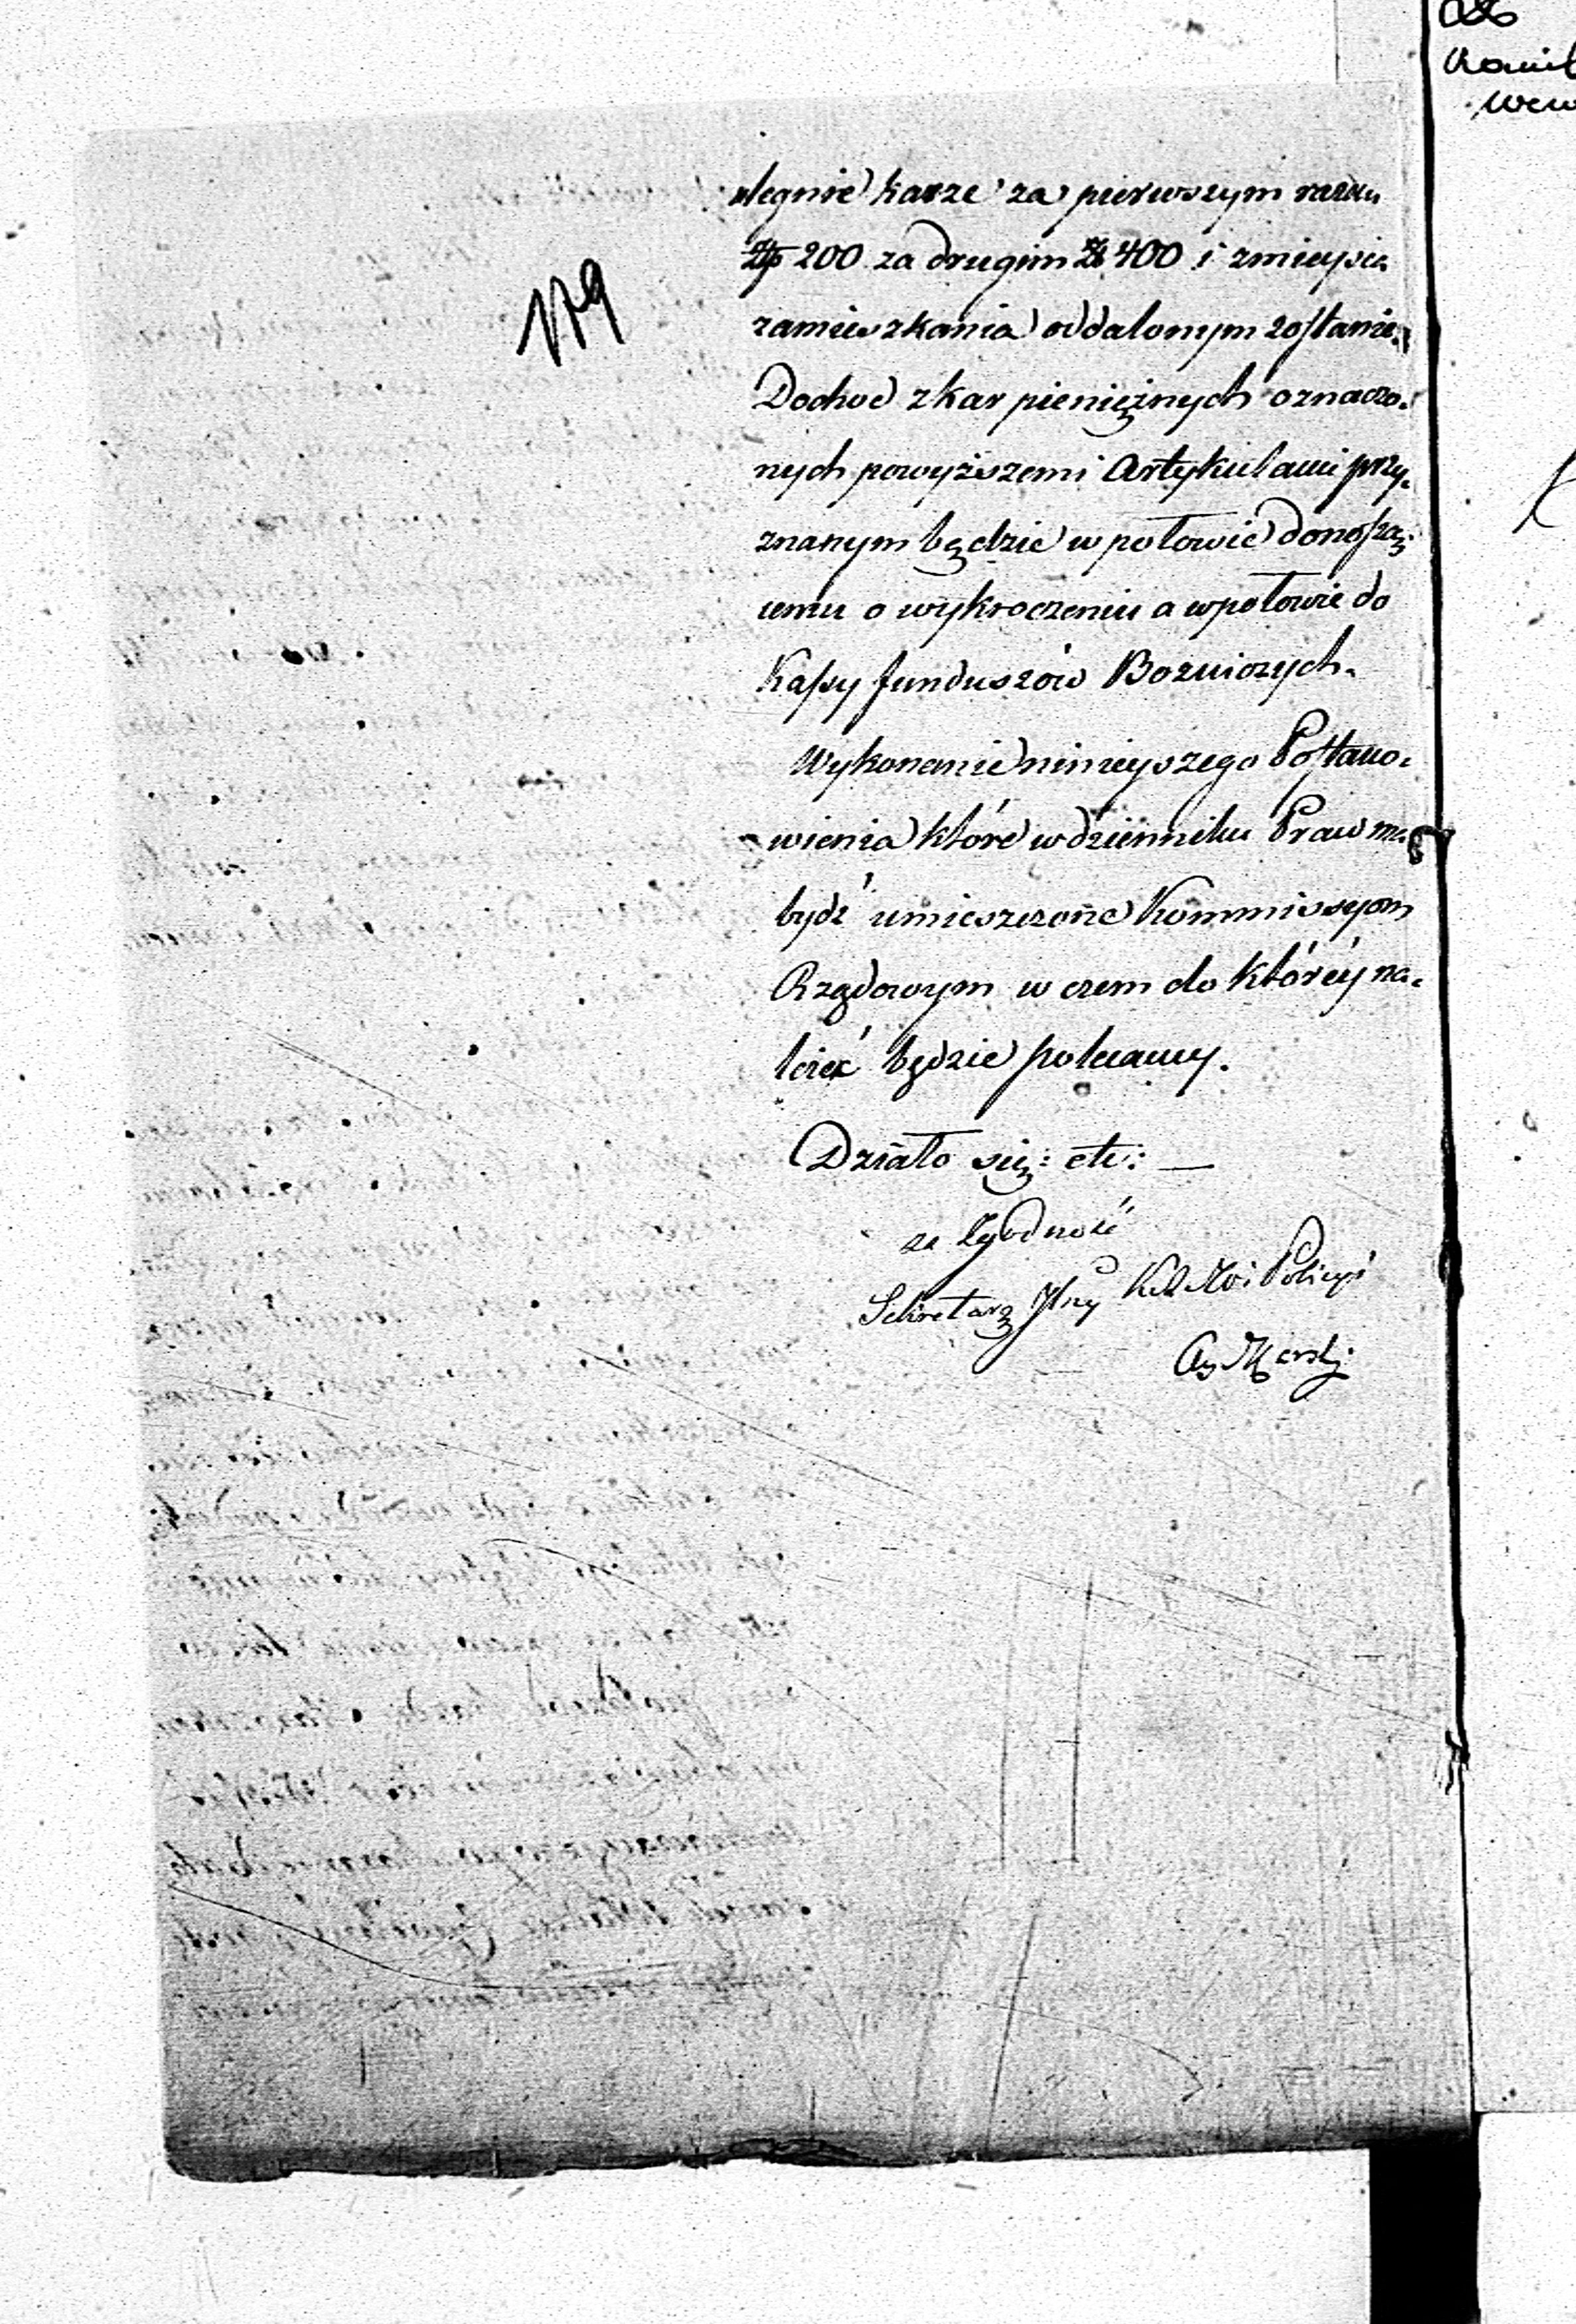 179
ulegnie karze za pierwszym razem
Złp 200 za drugim Zł 400 i zmieysca
zamieszkania oddalonym zostanie.
Dochod z kar pieniężnych oznaczo-
nych powyższemi Artykułami przy-
znanym będzie w połowie donoszą-
cemu o wykroczeniu a w połowie do
Kassy funduszów Bożniczych.
Wykonanie ninieyszego Postano-
wienia które w dzienniku Praw ma
bydź umieszczone Kommissyom
Rządowym w czem do któréy na-
leżeć będzie polecamy.
Działo się: etc: —
za Zgodność
Sekretarz Policyi